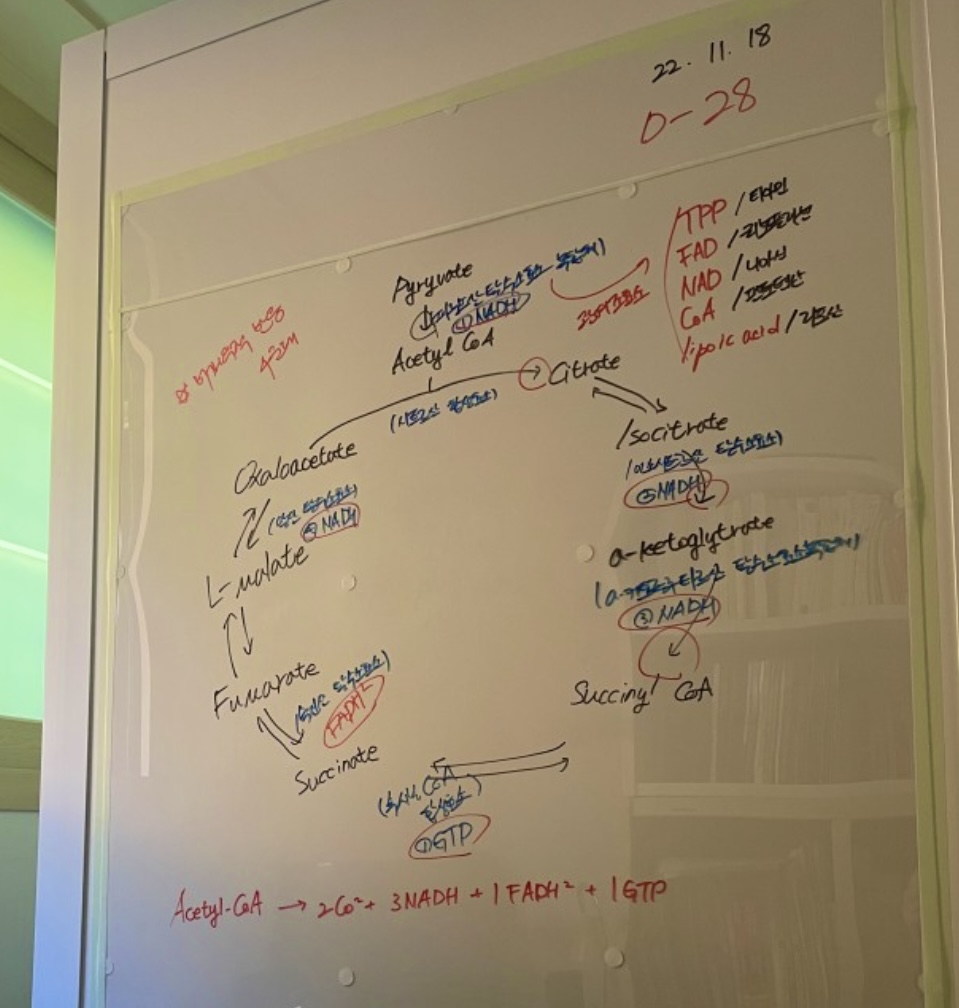 22. 11. 18
D-28
TPP / 티아민
FAD / 리보플라빈
NAD / 나이신
CoA / 판토텐산
lipoic acid / 리포산
Pyryvate
(피루브산 탈수소효소 복합체)
① NADH
Acetyl CoA
※ 비가역적 반응
Citrate
(시트르산 합성효소)
Oxaloacetate
Isocitrate
(이소시트르산 탈수소효소)
②NADH
(말산 탈수소효소)
④ NADH
a-ketoglytrate
L-malate
(a-케토글루타르산 탈수소효소복합체)
③ NADH
Fumarate
(숙신산 탈수소효소)
FADH²
Succinyl CoA
Succinate
(숙시닐 CoA
합성효소)
①GTP
Acetyl-CoA → 2Co² + 3NADH + 1FADH² + 1GTP